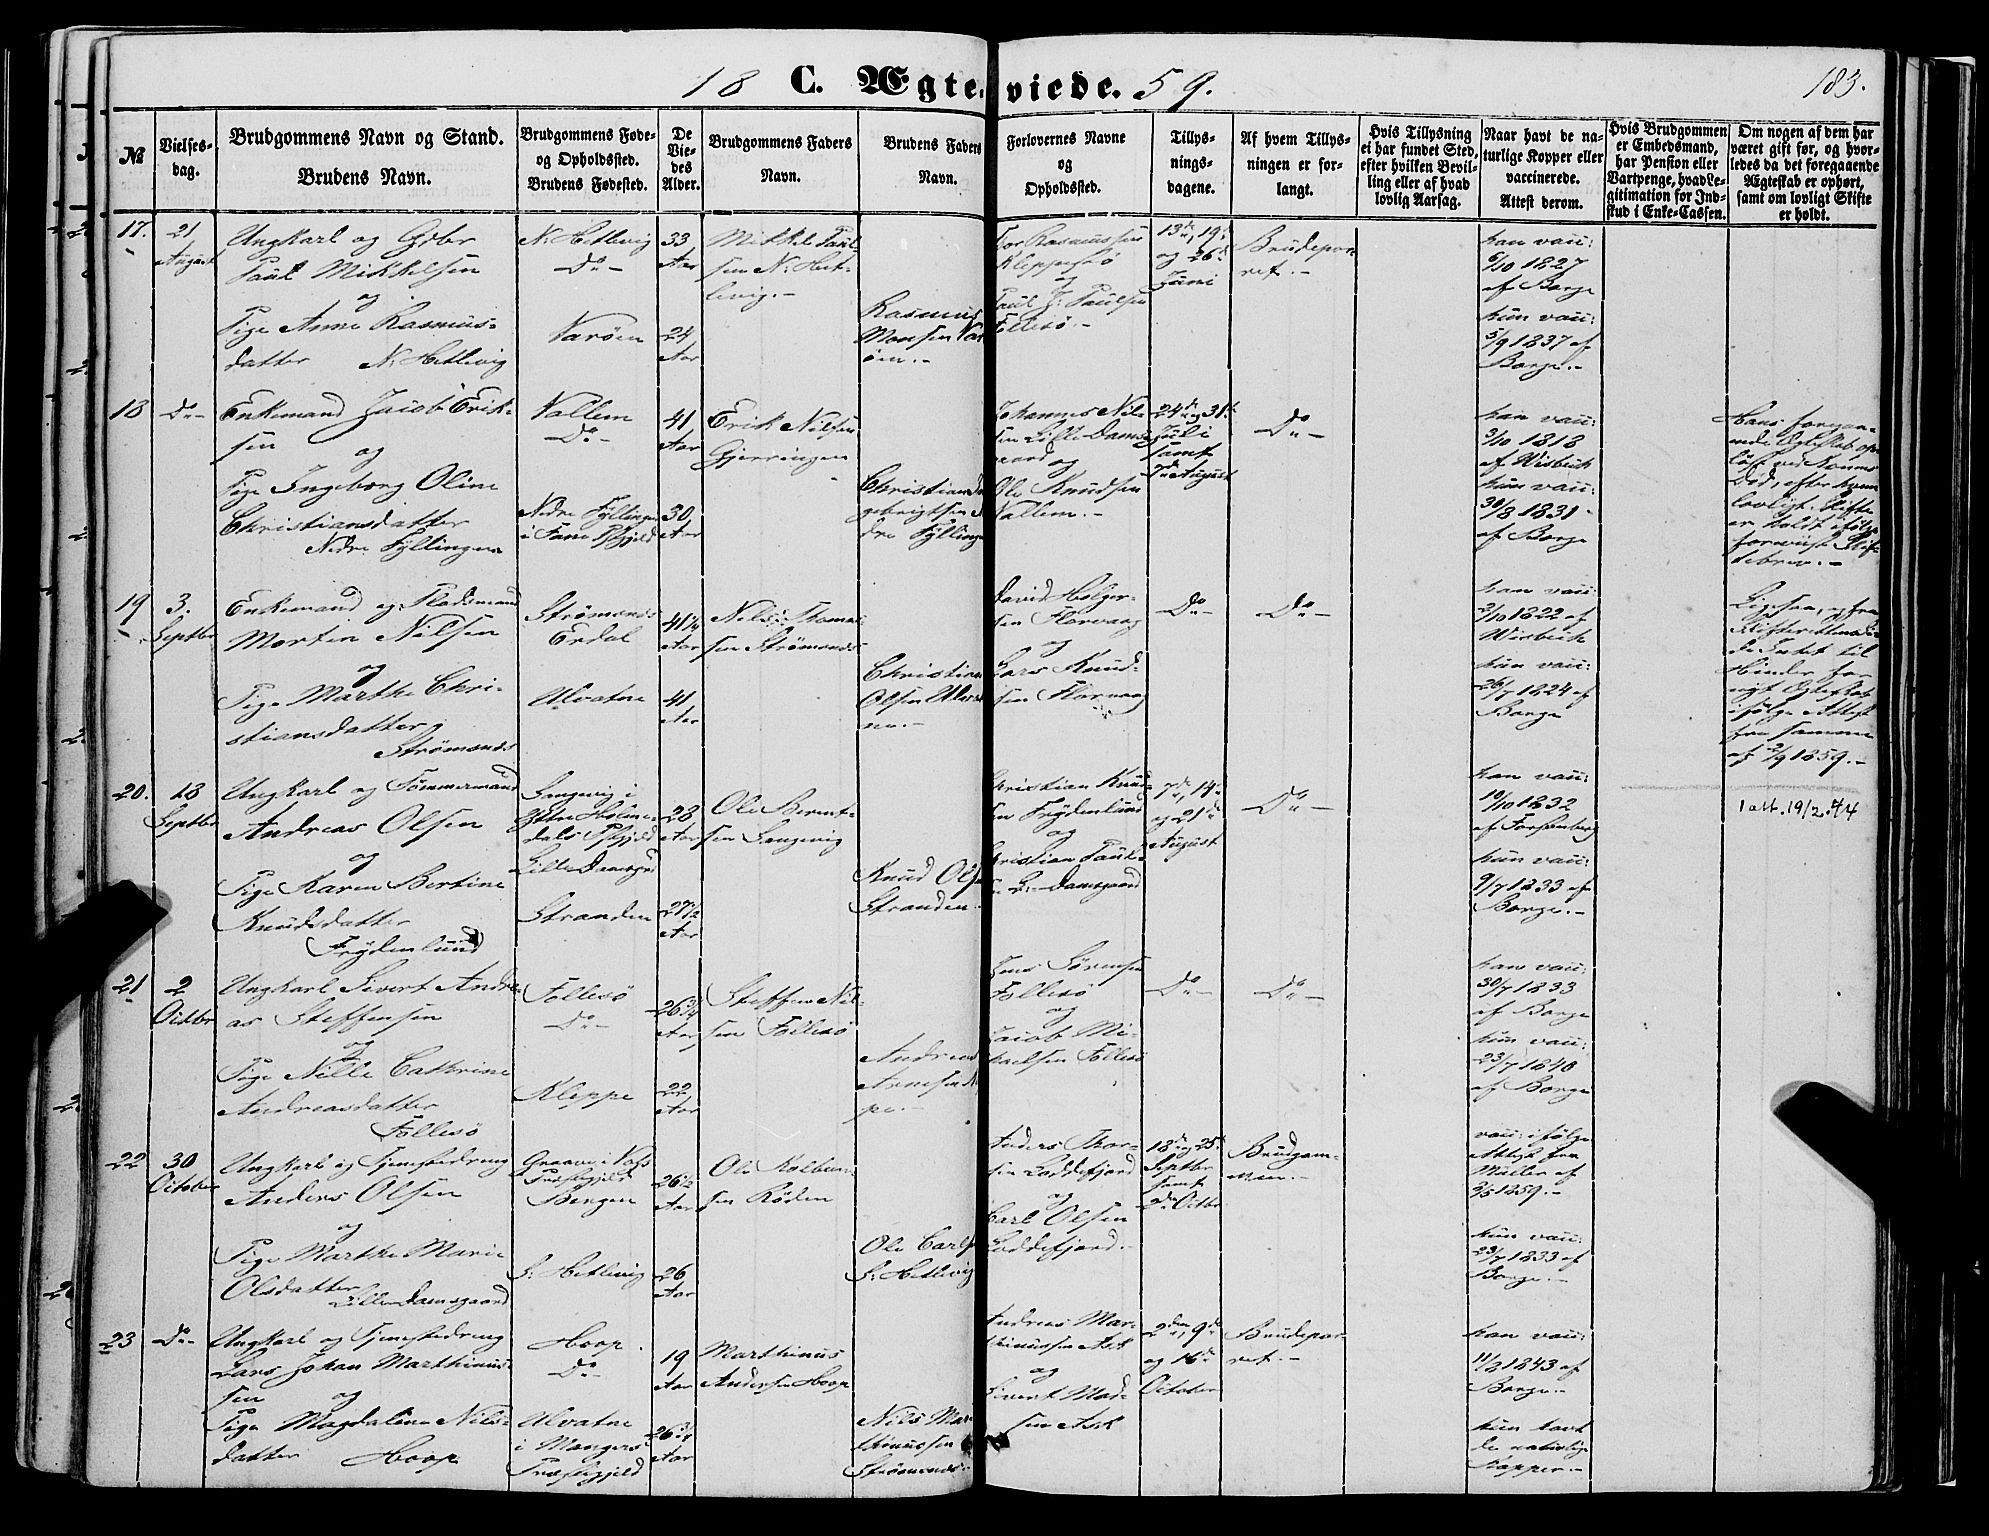 18 C. Ægteviede. 59.
183.
№
Vielses-
dag.
Brudgommens Navn og Stand.
Brudens Navn.
Brudgommens Føde-
og Opholdssted.
Brudens Fødested.
De
Vie-
des
Alder.
Brudgommens Faders
Navn.
Brudens Faders
Navn.
Forlovernes Navne
og
Opholdssted.
Tillys-
nings-
dagene.
Af hvem Tillys-
ningen er for-
langt.
Hvis Tillysning
ei har fundet Sted,
efter hvilken Bevil-
ling eller af hvad
lovlig Aarsag.
Naar havt de na-
turlige Kopper eller
vaccinerede.
Attest derom.
Hvis Brudgommen
er Embedsmand,
har Pension eller
Vartpenge, hvad Le-
gitimation for Ind-
skud i Enke-Cassen.
Om nogen af dem har
været gift før, og hvor-
ledes da det foregaaende
Ægteskab er ophørt,
samt om lovligt Skifte
er holdt.
17.
21
August
Ungkarl og Gbr
Paul Mikkelsen
og
Pige Anne Rasmus-
datter N: Hetlevig
N: Hetlevig
Do -
Varøen
33
Aar
24
Aar
Mikkel Paul-
sen N: Het-
levig.-
Rasmus
Monsen Var
øen.-
Tor Rasmussen
Kleppestø
og
Paul J: Paulsen
Follesø.-
13de, 19de
og 26de
Juni
Brudepar-
ret.-
han vacc:
6/10 1827
af Borge
hun vacc:
5/9 1837 af
Borge.-
18
Do -
Enkemand Jacob Erik-
sen
og
Pige Ingeborg Oline
Christiansdatter
Nedre Fyllingen
Vallem
Do -
Nedre Fyllingen
i Fane Psgjeld
41
Aar
30
Aar
Erik Nilsen
Gjerringen
Christian In
gebrigtsen N
dre Fyllinge
Johannes Nil-
sen Lille Dams-
gaard og
Ole Knudsen
Vallem.-
24de og 31te
Juli
samt
7de August
Do -
han vacc:
3/10 1818
af Wisbech
hun vacc:
30/8 1831
af Borge
Hans foregaa-
ende Egteskab op-
løst ved Konens
Død, efter hvem
lovligt Skifte
er holdt ifølge
foreviist Skif-
tebrev.-
19
3.
Septbr
Enkemand og Pladsmand
Morten Nilsen
og
Pige Marthe Chri-
stiansdatter
Strømsnes
Strømsnes
Erdal
Ulvatne
41 1/2
Aar
41
Aar
Nils Thomas-
sen Strømsnes
Christian
Olsen Ulvat
ne.-
David Holger-
sen Florvaag
og
Lars Knud-
sen Florvaag
Do -
Do -
han vacc:
2/10 1822 af
Wisbech
hun vacc:
26/7 1824 af
Borge
Hinder for
nyt Egteskab
ifølge Attest
fra samme
af 2/9 1859.-
20.
18
Septbr
Ungkarl og Tømmermand
Andreas Olsen
og
Pige Karen Bertine
Knudsdatter
Frydenlund
Sengevig i
Ytre Holme-
dals Psgjeld
Lille Damsgrd
Stranden
28
Aar
27 1/2
Aar
Ole Bernt-
sen Sengevig
Knud Olse
Stranden
Christian Knud-
sen Frydenlund
og
Christian Paul-
sen L: Damsgaard
7de, 14de
og 21de
August
Do -
han vacc:
10/10 1832
af Forssenberg
hun vacc:
9/7 1833 af
Borge.-
1 att. 19/2.44
21
2
Octbr
Ungkarl Sivert Andre-
as Steffensen
og
Pige Nille Cathrine
Andreasdatter
Follesø
Follesø
Do -
Kleppe
26 3/4
Aar
22
Aar
Steffen Nil-
sen Follesø
Andreas
Arnesen K
pe.-
Jens Sørensen
Follesø
og
Jacob Mi-
kaelsen Follesø
Do -
Do -
han vacc:
30/7 1833
af Borge
hun vacc:
23/7 1840
af Borge
22
30
October
Ungkarl og Tjenestedreng
Anders Olsen
og
Pige Marthe Marie
Olsdatter
Lille Damsgaard
Graave i Vos
Præstegjeld
Bergen
S: Hetlevig
26 1/2
Aar
26
Aar
Ole Kolbein-
sen Røden
Ole Carls
S: Hetlevig
Anders Thor-
sen Loddefjord
og
Carl Olsen
Loddefjord.-
18de og 25de
Septbr
samt
2den Octbr
Brudgom-
men.-
vacc: ifølge
Attest fra
Müller af
2/5 1859.-
hun vacc:
23/7 1833 af
Borge.-
23
Do -
Ungkarl og Tjenestedreng
Lars Johan Marthinus-
sen
og
Pige Magdalene Nils-
datter Hoop
Hoop
Do -
Ulvatne
i Mangers
Præstegjeld
19
Aar
26 3/4
Aar
Marthinus
Andersen Hoop
Nils Mar-
thinussen
Strømsnes.-
Andreas Mar-
thinussen Ask
og
Sivert Mad-
sen Ask
2den, 9de
og 16de
October
Brudepar-
ret.-
han vacc:
11/8 1843 af
Borge.-
hun havt
de naturlige
Kopper.-